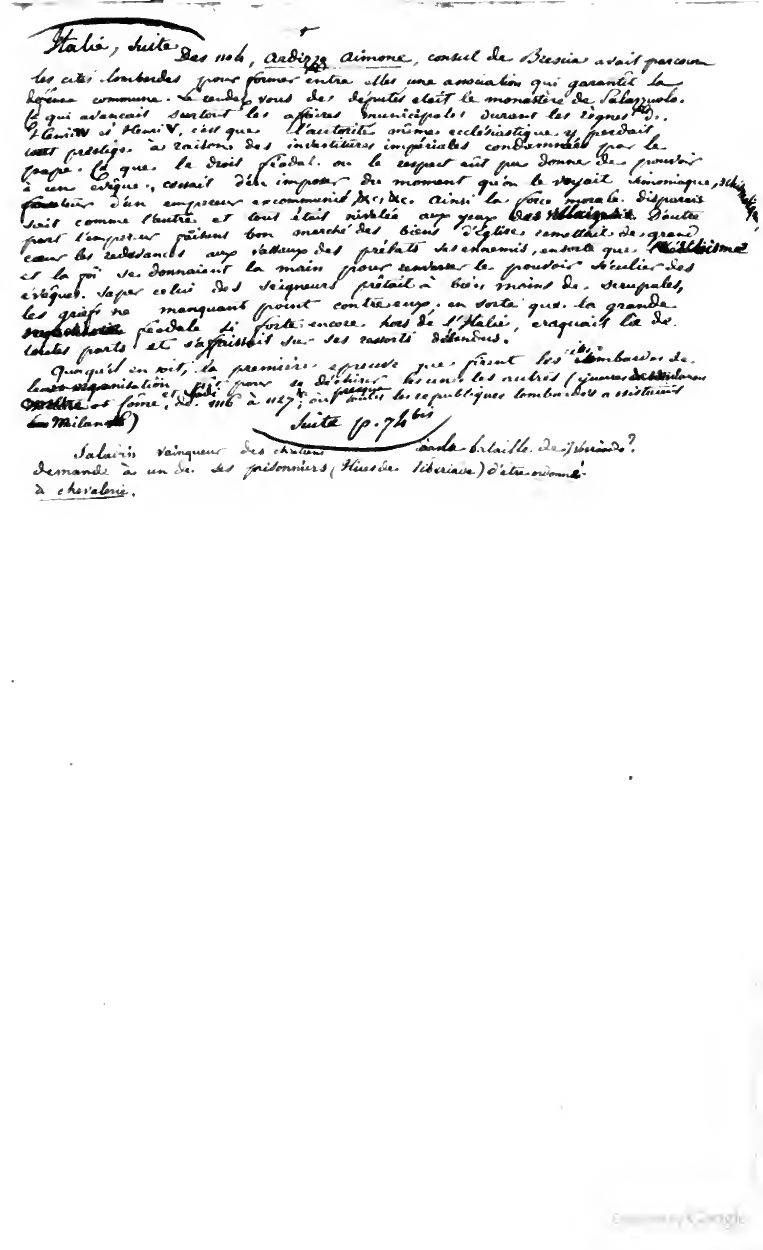 Italie, Suite Dès 1104, Ardizze Aimone, consul de Brescia avait parcouru
les cités lombardes pour former entre elles une association qui garantit la
défense commune. Le rendez vous des députés était le monastère de Palazzuolo.
Ce qui avançait surtout les affaires municipales durant les règnes de
Henri IV et Henri V, c'est que l'autorité même ecclésiastique y perdait
tout prestige à raison des investitures impériales condamnées par le
pape. Ce que le droit féodal ou le respect eût pu donner de pouvoir
à un évêque, cessait d'en imposer du moment qu'on le voyait simoniaque,
d'un empereur excommunié &c; &c. ainsi la force morale disparais
sait comme l'autre et tout était nivelé aux yeux D'autre
part l'empereur faisant bon marché des biens d'église remettait de grand
cœur les redevances aux vassaux des prélats ses ennemis, en sorte que
et la foi se donnaient la main pour renverser le pouvoir séculier des
évêques. Saper celui des seigneurs prêtait à bien moins de scrupules,
les griefs ne manquant point contre eux. en sorte que la grande
féodale si forte encore hors de l'Italie, craquait là de
toutes parts et s'affaissait sur ses ressorts détendus.
Quoiqu'il en soit, la première épreuve que firent les cités lombardes de
leur organisation, fut pour se déchirer les unes les autres (guerres
et Côme, de 1116 à 1127; où presque toutes les républiques lombardes assistaient
Milan)
Suite p. 74 bis
Saladin vainqueur des chrétiens à la bataille de Tibériade?
demande à un de ses prisonniers (Hues de Tibériade) d'être ordonné
à chevalerie.